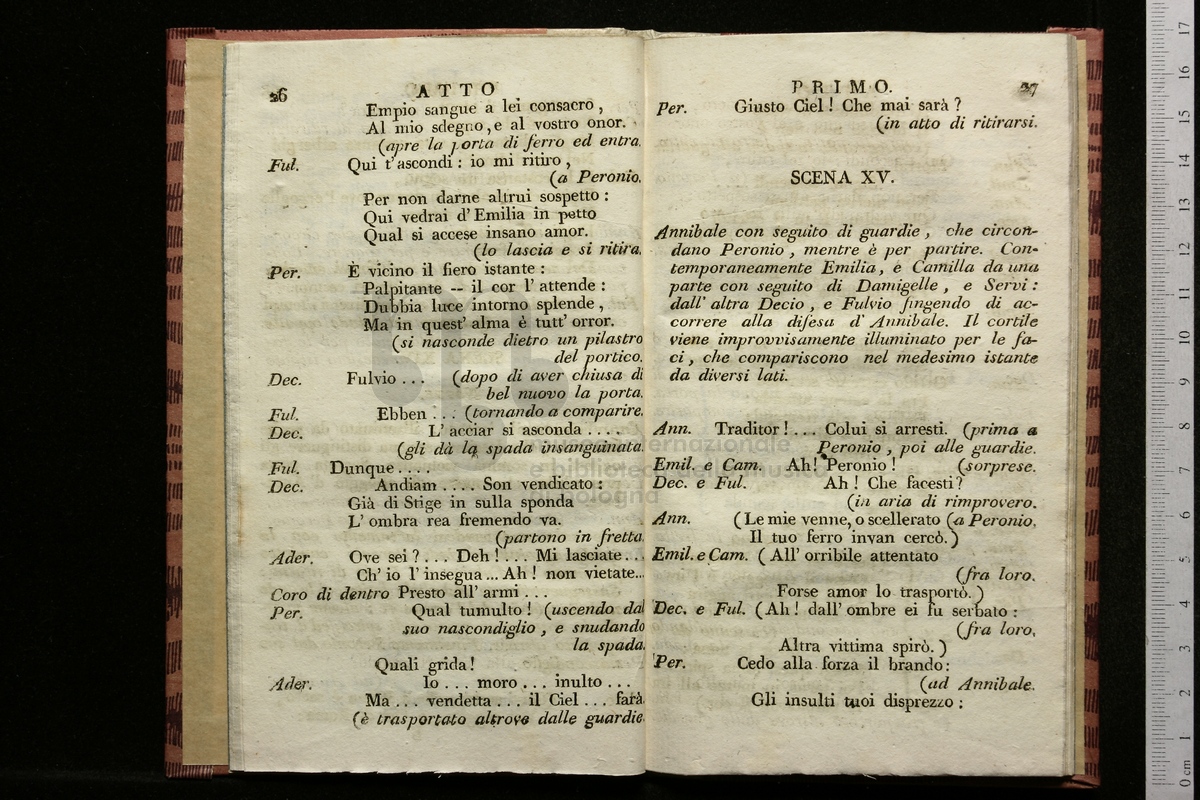 26 ATTO
Empio sangue a lei consacro,
Al mio sdegno, e al vostro onor.
(apre la porta di ferro ed entra.
Ful. Qui t'ascondi: io mi ritiro,
(a Peronio.
Per non darne altrui sospetto:
Qui vedrai d'Emilia in petto
Qual si accese insano amor.
(lo lascia e si ritira.
Per. È vicino il fiero istante:
Palpitante -- il cor l'attende:
Dubbia luce intorno splende,
Ma in quest' alma è tutt' orror.
(si nasconde dietro un pilastro
del portico.
Dec. Fulvio... (dopo di aver chiusa di
bel nuovo la porta.
Ful. Ebben... (tornando a comparire.
Dec. L'acciar si asconda....
(gli dà la spada insanguinata.
Ful. Dunque....
Dec. Andiam.... Son vendicato:
Già di Stige in sulla sponda
L'ombra rea fremendo va.
(partono in fretta.
Ader. Ove sei?... Deh!... Mi lasciate...
Ch'io l'insegua... Ah! non vietate...
Coro di dentro Presto all'armi...
Per. Qual tumulto! (uscendo dal
suo nascondiglio, e snudando
la spada.
Quali grida!
Ader. Io... moro... inulto...
Ma... vendetta... il Ciel... farà.
(è trasportato altrove dalle guardie.
PRIMO. 27
Per. Giusto Ciel! Che mai sarà?
(in atto di ritirarsi.
SCENA XV.
Annibale con seguito di guardie, che circon-
dano Peronio, mentre è per partire. Con-
temporaneamente Emilia, e Camilla da una
parte con seguito di Damigelle, e Servi:
dall' altra Decio, e Fulvio fingendo di ac-
correre alla difesa d'Annibale. Il cortile
viene improvvisamente illuminato per le fa-
ci, che compariscono nel medesimo istante
da diversi lati.
Ann. Traditor!... Colui si arresti. (prima a
Peronio, poi alle guardie.
Emil. e Cam. Ah! Peronio! (sorprese.
Dec. e Ful. Ah! Che facesti?
(in aria di rimprovero.
Ann. (Le mie vene, o scellerato (a Peronio.
Il tuo ferro invan cercò.)
Emil. e Cam. (All' orribile attentato
(fra loro.
Forse amor lo trasportò.)
Dec. e Ful. (Ah! dall' ombre ei fu serbato:
(fra loro.
Altra vittima spirò.)
Per. Cedo alla forza il brando:
(ad Annibale.
Gli insulti tuoi disprezzo;